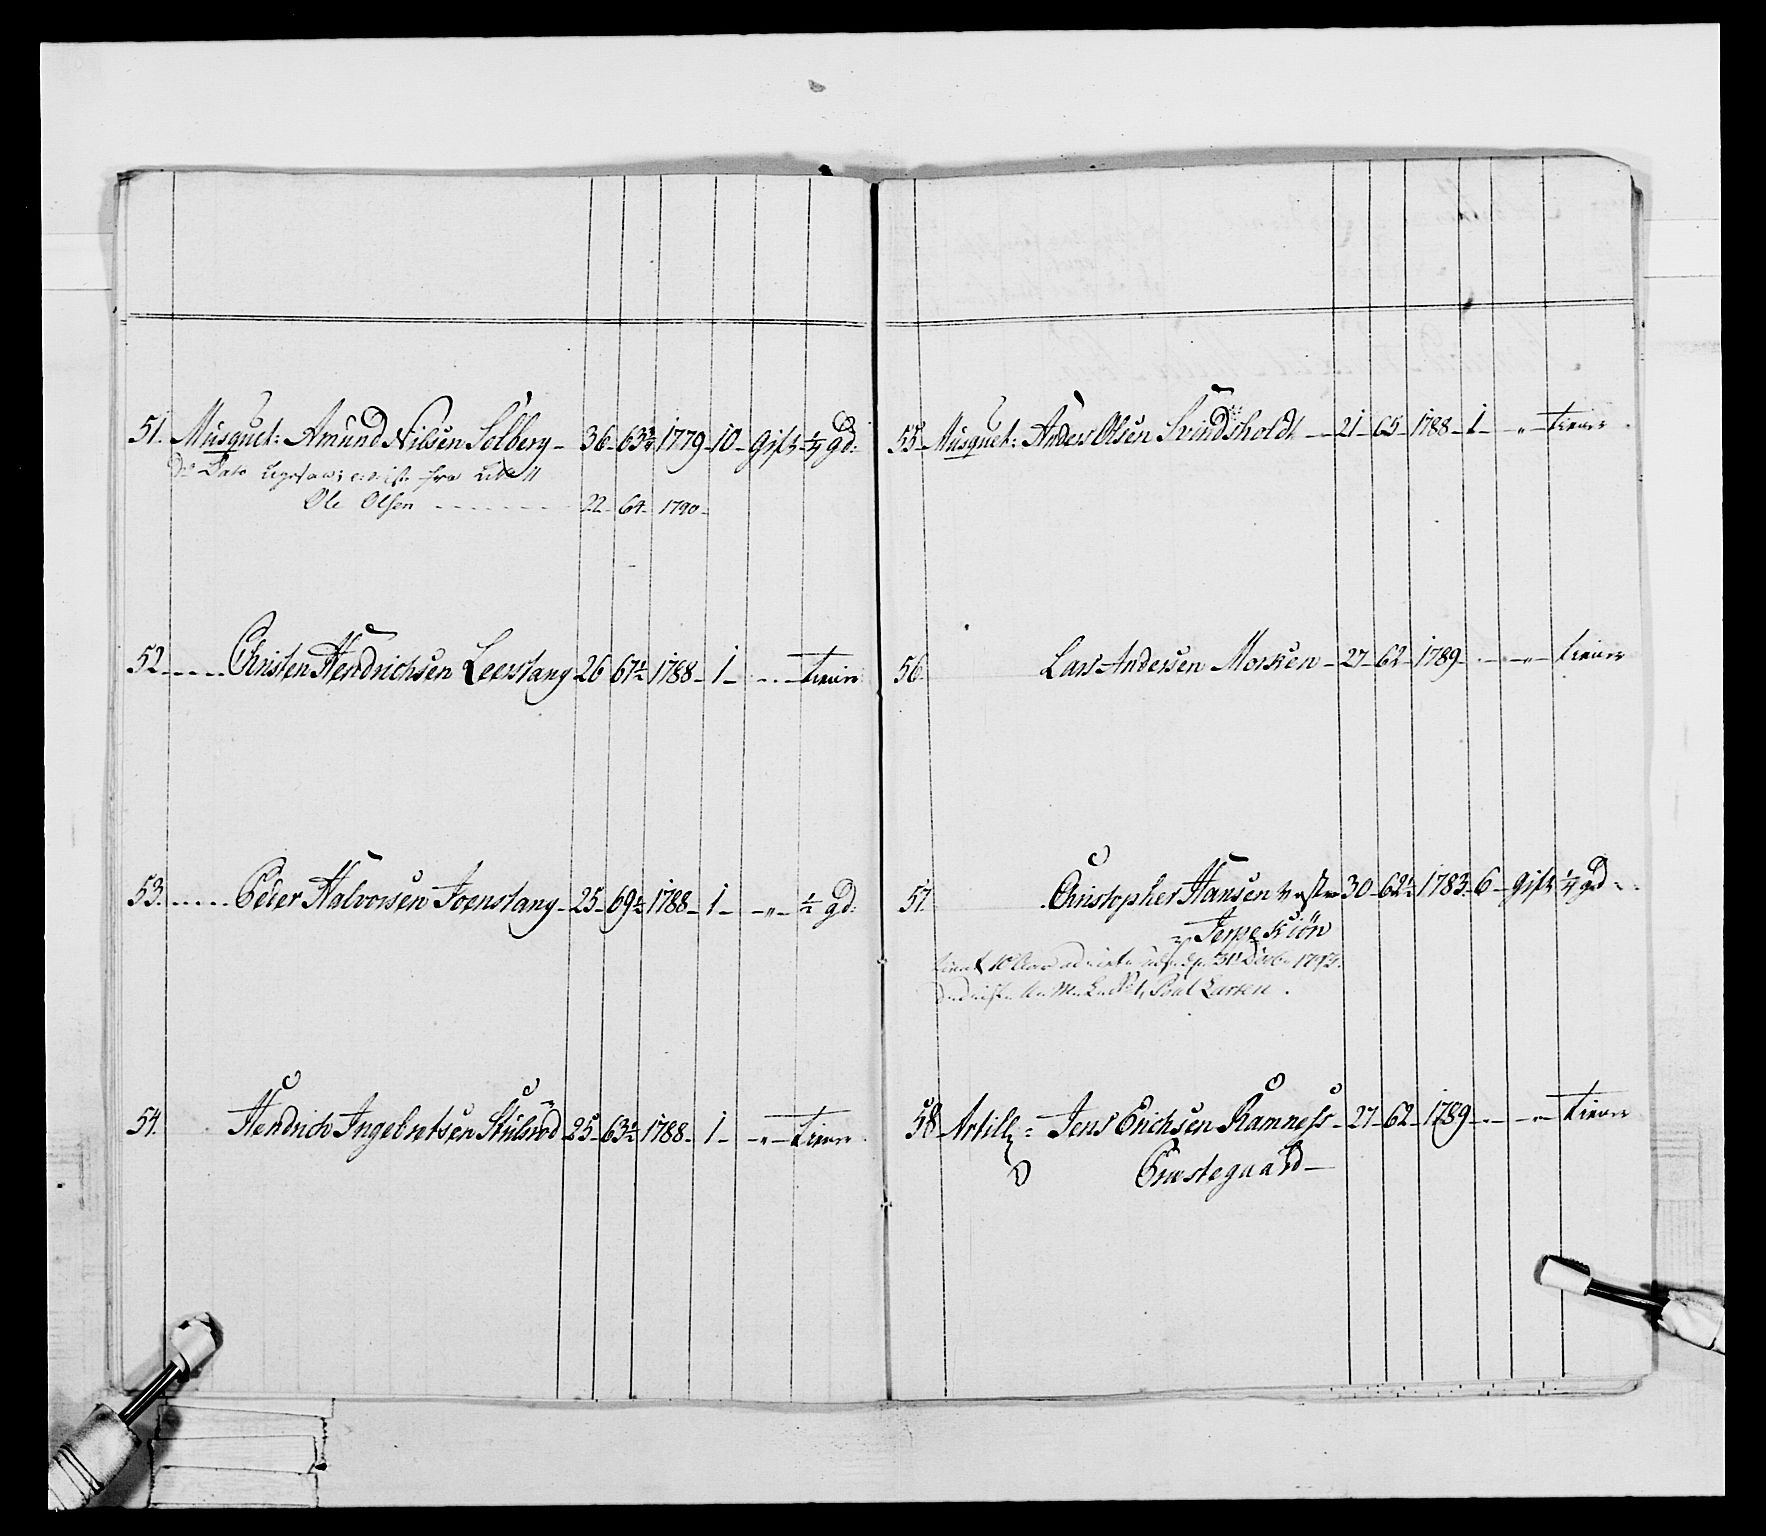 51. Musquet: Amund Nilsen Solberg - 36 - 63¾ - 1779 - 10 - Gift - ¼ gd:
Ole Olsen - - - - - - - 22 - 64 - 1790 -
52 - - - - Christen Hendrichsen Leerstang - 26 - 67½ - 1788 - 1 - - - - tiener
53. - - - - Peder Halvorsen Joenstang - 25 - 69½ - 1788 - 1 - - „ - ½ gd:
54. Hendrich Ingebretsen Skulsrød - 25 - 63½ - 1788 - 1 - - „ - tiener
55 - Musquet: Anders Olsen Svindsholdt - 21 - 65 - 1788 - 1 - - „ - tiener
56. Lars Andersen Morsken - 27 - 62 - 1789 - - - „ - tiener
57. Christopher Hansen 30 - 62½ - 1783 - 6 - gift ¼ gd -
Jerpekiøn
tient 10 Aar
Poul Larsen.
58 Artill: Jens Erichsen Ramness - 27 - 62 - 1789 - - - „ - tiener
Præstegaard -